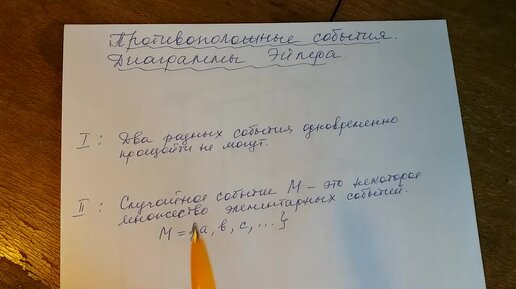 Противоположные события.
Диаграммы Эйлера.
I : Два разных события одновременно
произойти не могут.
II : Случайное событие М – это некоторое
множество элементарных событий.
М = {a, b, c, ...}